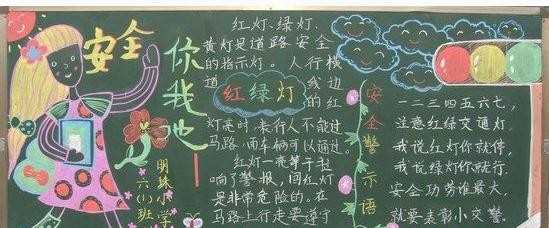 安全
你我他
明珠小学
六(1)班
红灯、绿灯,
黄灯是道路安全
的指示灯。人行横
道 线边
红绿灯
的红
灯亮时,表行人不能过
马路,而车辆可以通过。
红灯一亮等于拉
响了警报,闯红灯
是非常危险的,在
马路上行走要遵守
安全警示语
一二三四五六七,
注意红绿交通灯
我说红灯你就停,
我说绿灯你就行.
安全功劳谁最大,
就要表彰小交警.